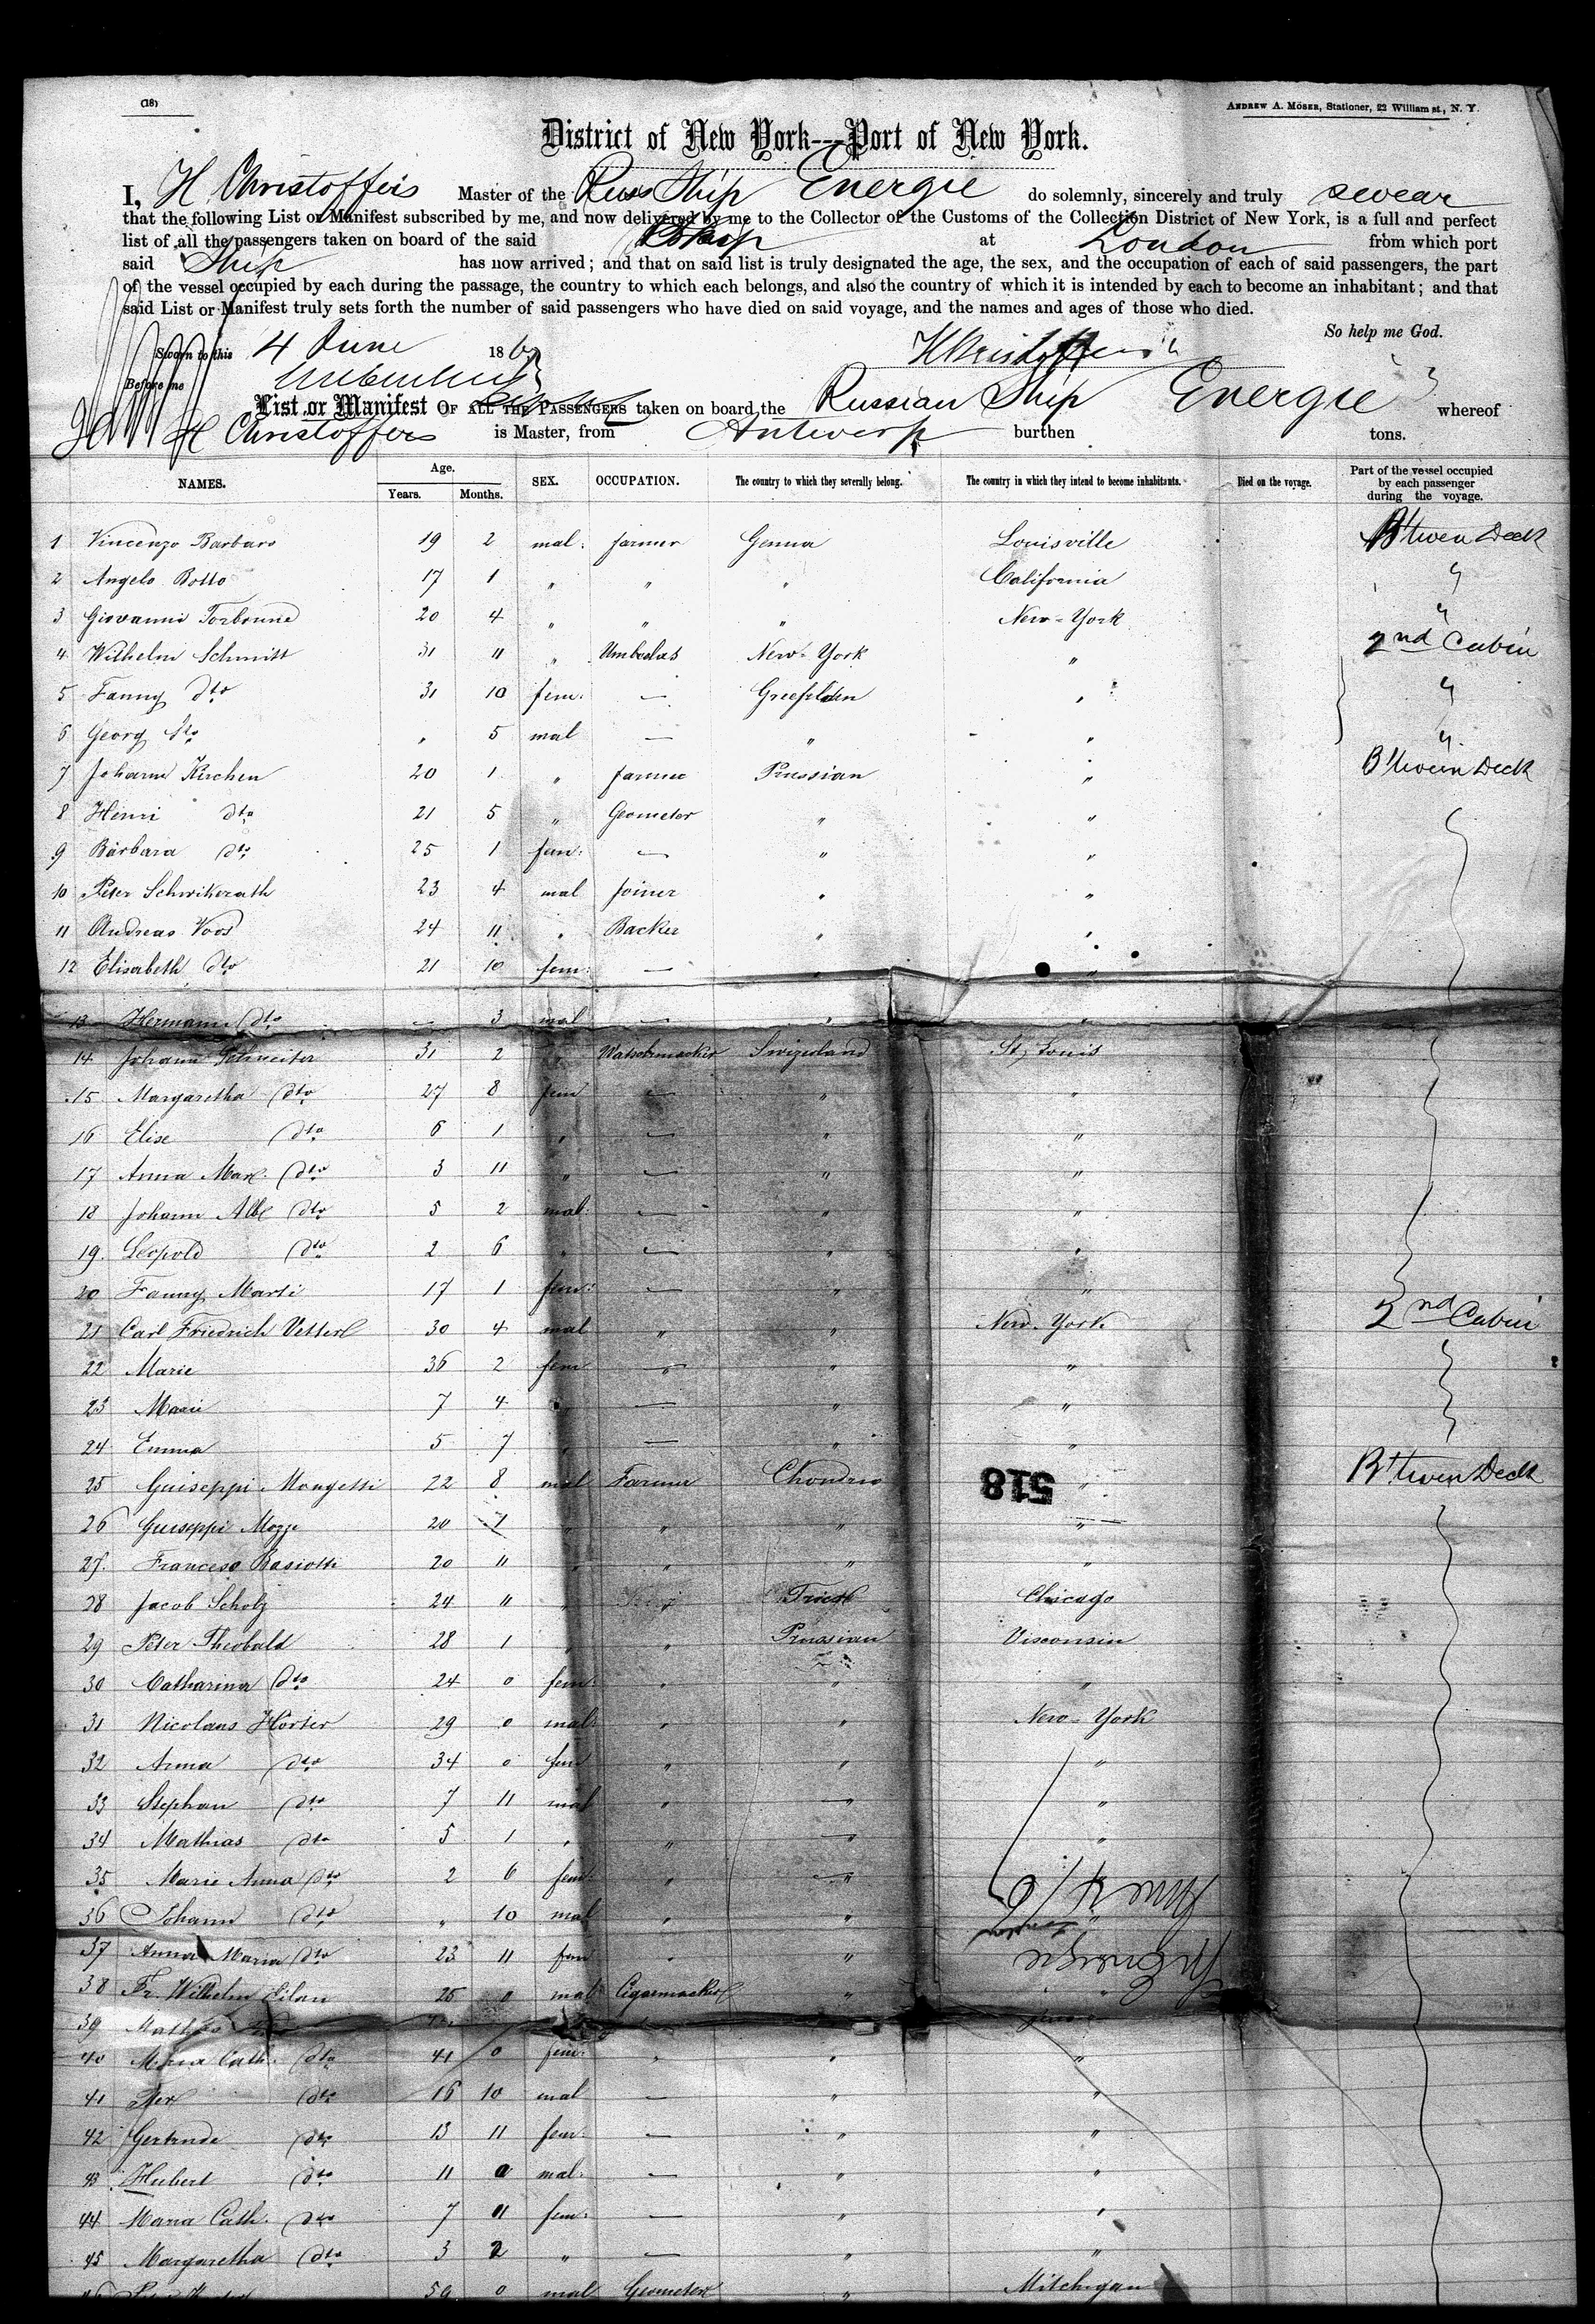 (18)
ANDREW A. MÖSER, Stationer, 22 William st., N. Y.
District of New York---Port of New York.
I, H Christoffers Master of the Russ Ship Energie do solemnly, sincerely and truly swear
that the following List or Manifest subscribed by me, and now delivered by me to the Collector of the Customs of the Collection District of New York, is a full and perfect
list of all the passengers taken on board of the said at London from which port
said Ship has now arrived; and that on said list is truly designated the age, the sex, and the occupation of each of said passengers, the part
of the vessel occupied by each during the passage, the country to which each belongs, and also the country of which it is intended by each to become an inhabitant; and that
said List or Manifest truly sets forth the number of said passengers who have died on said voyage, and the names and ages of those who died.
So help me God.
Sworn to this 4 June 186
Before me
List or Manifest OF ALL THE PASSENGERS taken on board the Russian Ship Energie whereof
H Christoffers is Master, from Antwerp burthen tons.
NAMES. Age. Years. Months. SEX. OCCUPATION. The country to which they severally belong. The country in which they intend to become inhabitants. Died on the voyage. Part of the vessel occupied by each passenger during the voyage.
1 Vincenzo Barbaro 19 2 mal: farmer Genua Louisville B'tween Deck
2 Angelo Botto 17 1 " " " California "
3 Giovanni Torbonne 20 4 " " " New-York "
4 Wilhelm Schmitt 31 11 " New-York " 2nd Cabin
5 Fanny dto 31 10 fem: — " "
6 Georg dto " 5 mal — " " "
7 Johann Kirchen 20 1 " farmer Prussian " B'tween Deck
8 Henri dto 21 5 " Geometer " "
9 Barbara dto 25 1 fem: — " "
10 Peter Schwikerath 23 4 mal Joiner " "
11 Andreas Voos 24 11 " Backer " "
12 Elisabeth dto 21 10 fem: — " "
13 Hermann dto — 3 mal — " "
14 Johann Schweiter 31 2 " Watschmacker Swizerland St, Louis
15 Margaretha dto 27 8 fem — " "
16 Elise dto 6 1 " — " "
17 Anna Mar. dto 3 11 " — " "
18 Johann Alb dto 5 2 mal — " "
19. Leopold dto 2 6 " — " "
20 Fanny Marti 17 1 fem: — " "
21 Carl Friedrich Vetterl 30 4 mal " " New-York 2nd Cabin
22 Marie 36 2 fem — " "
23 Marie 7 4 " — " "
24 Emma 5 7 " — " "
25 Guiseppi Mongetti 22 8 mal Farmer Chondrio " B'tween Deck
518
26 Guiseppi Mozze 20 1 " " " "
27. Franceso Basiotti 20 11 " " " "
28 Jacob Scholz 24 11 " Chicago
29 Peter Theobald 28 1 " " Prussian Visconsin
30 Catharina dto 24 0 fem: " " "
31 Nicolaus Hörter 29 0 mal: " " New-York
32 Anna dto 34 0 fem " " "
33 Stephan dto 7 11 mal " " "
34 Mathias dto 5 1 " " " "
35 Marie Anna dto 2 6 fem: " "
36 Johann dto " 10 mal " "
37 Anna Maria dto 23 11 fem " "
Energie
38 Fr. Wilhelm Eilan 25 0 mal Cigarmacker "
39
40 Maria Cath. dto 41 0 fem: " " "
41 Per dto 16 10 mal — " "
42 Gertrude dto 13 11 fem: — " "
43 Hubert dto 11 0 mal: — " "
44 Maria Cath. dto 7 11 fem: — " "
45 Margaretha dto 3 2 " — " "
59 0 mal Geometer " Mitchigan